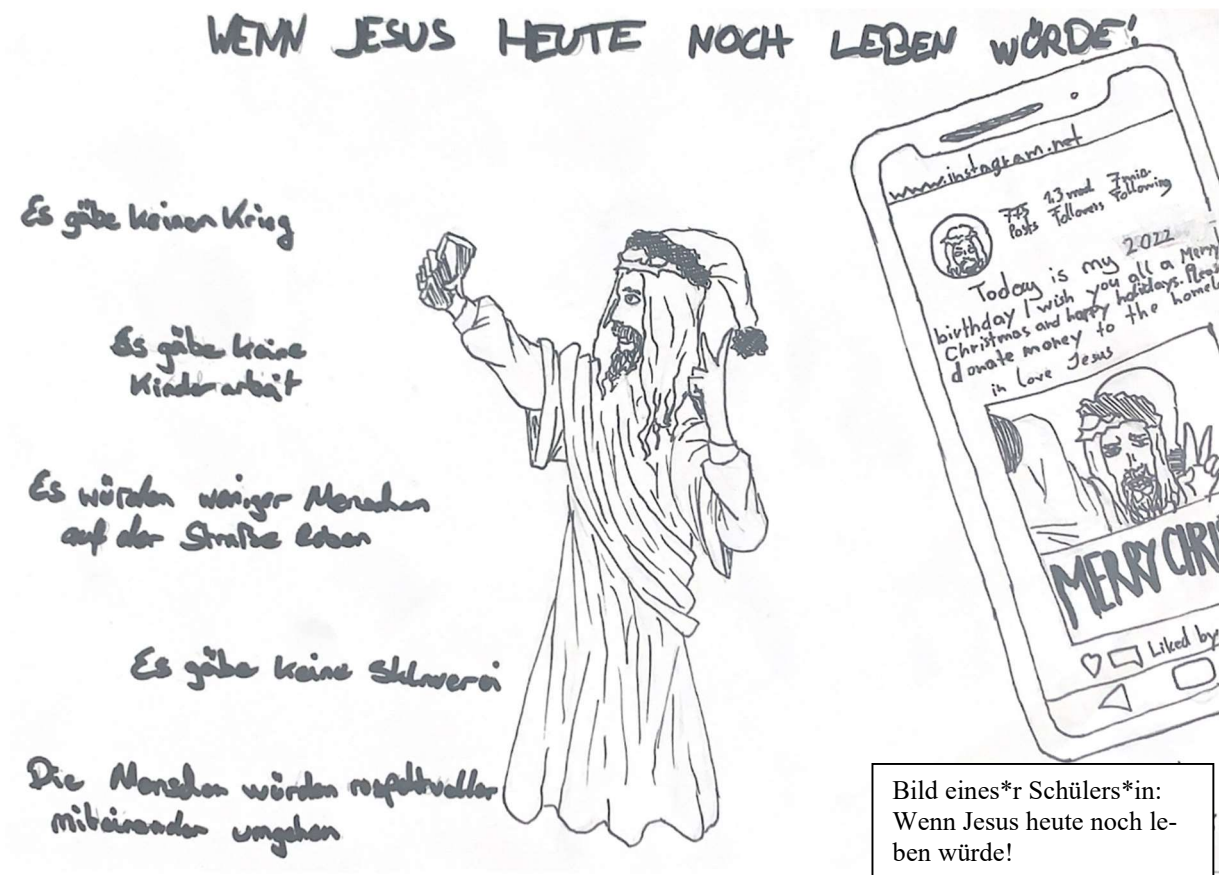 WENN JESUS HEUTE NOCH LEBEN WÜRDE!
Es gäbe keinen Krieg
Es gäbe keine
Kinderarbeit
Es würden weniger Menschen
auf der Straße leben
Es gäbe keine Sklaverei
Die Menschen würden respektvoller
miteinander umgehen
www.instagram.net
775 1,3 mrd 7 mio
Posts Followers Following
2022
Today is my
birthday I wish you all a Merry
Christmas and happy holidays. Pleas
donate money to the homel
in love Jesus
MERRY CHRI
Liked by
Bild eines*r Schülers*in:
Wenn Jesus heute noch le-
ben würde!